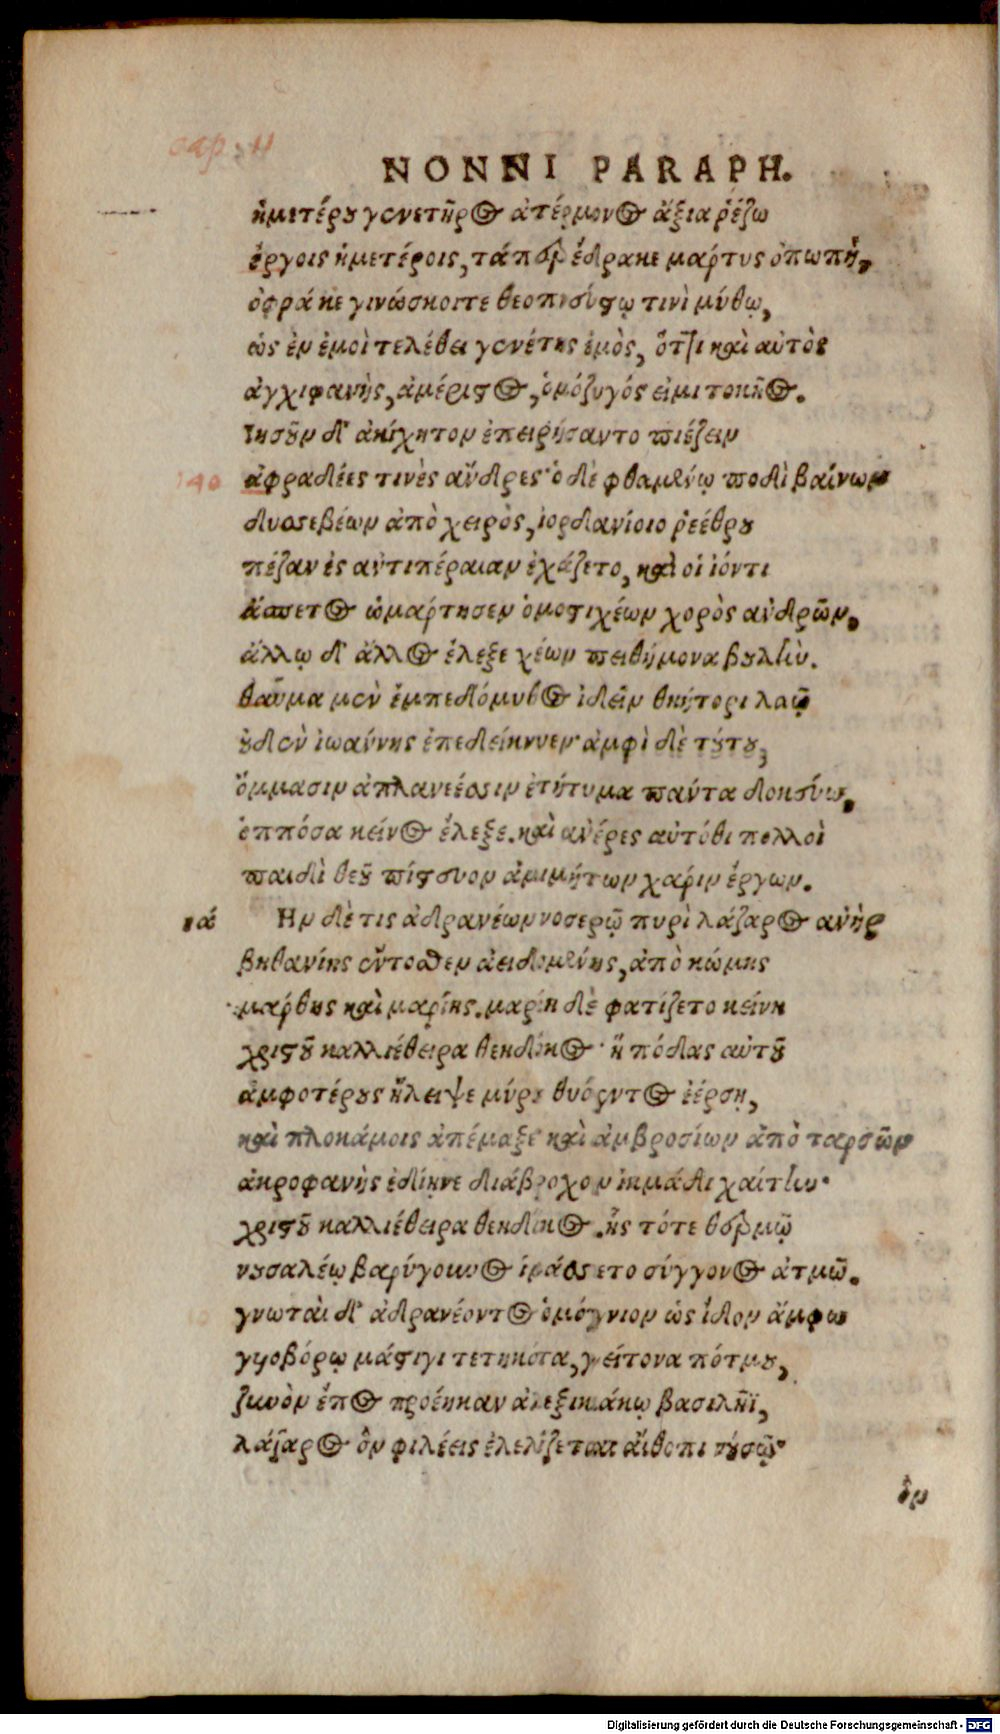 cap. 11
NONNI PARAPH.
ἡμετέρου γενετῆρος ἀτέρμονος ἄξια ῥέζω
ἔργοις ἡμετέροις, τάπερ ἔδρακε μάρτυς ὀπωπή,
ὄφρά κε γινώσκοιτε θεοπνεύστῳ τινὶ μύθῳ,
ὡς ἐν ἐμοὶ τελέθει γενέτης ἐμὸς, ὅττι καὶ αὐτὸς
ἀγχιφανὴς, ἀμέριστος, ὁμόζυγός εἰμι τοκῆος.
Ἰησοῦν δ' ἀκίχητον ἐπειρήσαντο πιέζειν
140 ἀφραδέες τινὲς ἄνδρες· ὁ δὲ φθαμένῳ ποδὶ βαίνων
δυσσεβέων ἀπὸ χειρὸς, ἰορδανίοιο ῥεέθρου
πέζαν ἐς ἀντιπέραιαν ἐχάζετο, καὶ οἱ ἰόντι
ἄσπετος ὡμάρτησεν ὁμοστιχέων χορὸς ἀνδρῶν,
ἄλλῳ δ' ἄλλος ἔλεξε χέων πειθήμονα βουλήν.
θαῦμα μὲν ἐμπεδόμυθος ἰδεῖν θηήτορι λαῷ
οὐδὲν ἰωάννης ἐπεδείκνυεν· ἀμφὶ δὲ τούτου,
ὄμμασιν ἀπλανέεσσιν ἐτήτυμα πάντα δοκεύω,
ὁππόσα κεῖνος ἔλεξε. καὶ ἀνέρες αὐτόθι πολλοὶ
παιδὶ θεοῦ πίστευον ἀμιμήτων χάριν ἔργων.
ιά Ην δέ τις ἀδρανέων νοσερῷ πυρὶ λάζαρος ἀνὴρ
βηθανίης ἔντοσθεν ἀειδομένης, ἀπὸ κώμης
μάρθης καὶ μαρίης. μαρίη δὲ φατίζετο κείνη
χριστοῦ καλλιέθειρα θεηδόκος· ἣ πόδας αὐτοῦ
ἀμφοτέρους ἤλειψε μύρου θυόεντος ἐέρσῃ,
καὶ πλοκάμοις ἀπέμαξε καὶ ἀμβροσίων ἀπὸ ταρσῶν
ἀκροφανὴς ἐδίηνε διάβροχον ἰκμάδι χαίτην·
χριστοῦ καλλιέθειρα θεηδόκος. ἧς τότε θερμῷ
νουσαλέῳ βαρύγουνος ἱμάσσετο σύγγονος ἀτμῷ.
γνωταὶ δ' ἀδρανέοντος ὁμόγνιον ὡς ἴδον ἄμφω
γυιοβόρῳ μάστιγι τετηκότα, γείτονα πότμου,
ξυνὸν ἔπος προέηκαν ἀλεξικάκῳ βασιλῆϊ,
λάζαρος ὃν φιλέεις ἐλελίζεται αἴθοπι νούσῳ·
ὃν
Digitalisierung gefördert durch die Deutsche Forschungsgemeinschaft - DFG